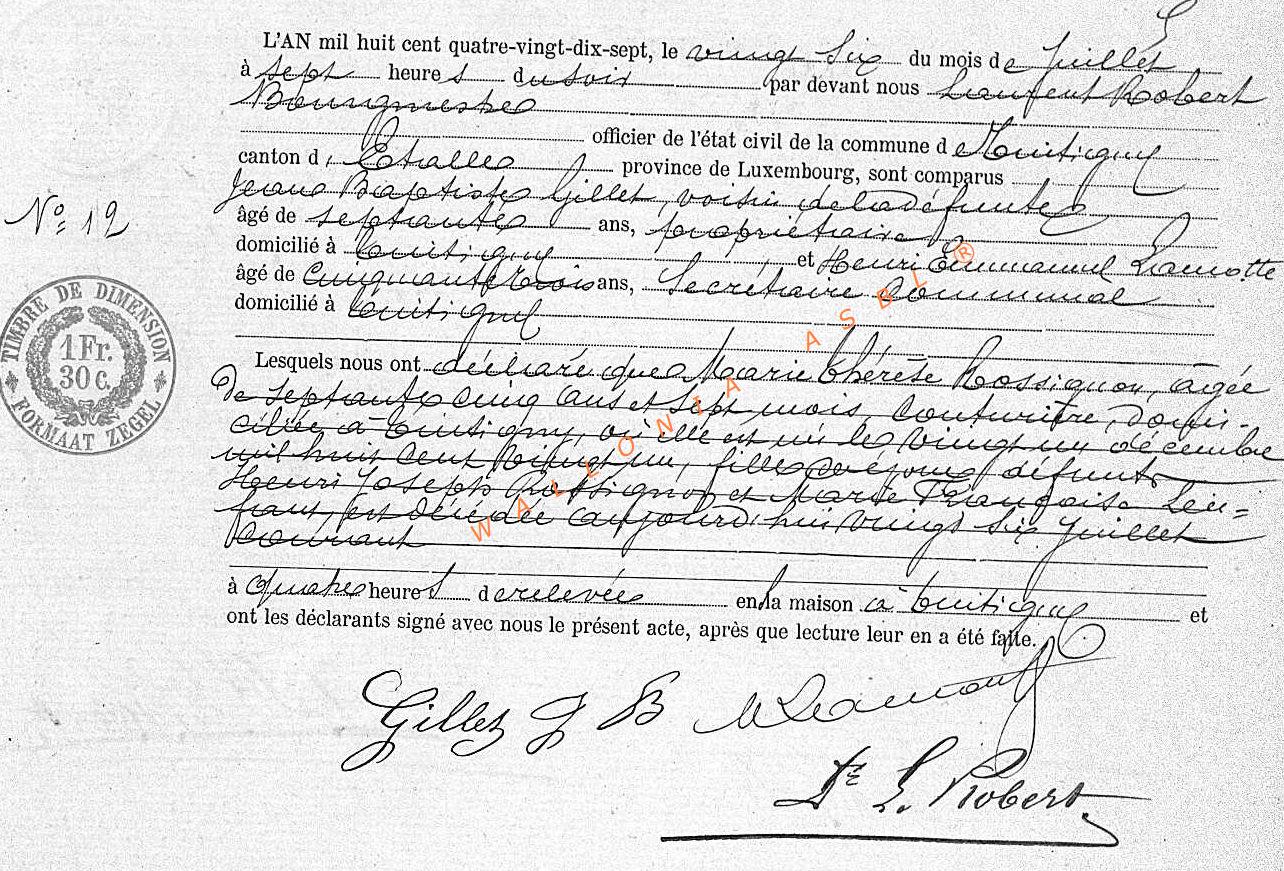 L'AN mil huit cent quatre-vingt-dix-sept, le vingt six du mois de juillet
à sept heures du soir par devant nous Laurent Robert
Bourgmestre
officier de l'état civil de la commune de Tintigny
canton d'Etalle province de Luxembourg, sont comparus
Jean Baptiste Gillet, voisin de la défunte
âgé de septante ans, propriétaire
domicilié à Tintigny et Henri Emmanuel Lamotte
âgé de cinquante trois ans, Secrétaire Communal
domicilié à Tintigny
Lesquels nous ont déclaré que Marie Thérèse Rossignon, agée
de septante cinq ans et sept mois, couturière, domi-
ciliée à Tintigny, où elle est né le vingt un décembre
mil huit cent vingt un, fille de défunts
Henri Joseph Rossignon et Marie Françoise
est décédée aujourd'hui vingt six juillet
courant
à quatre heures de relevée en la maison à Tintigny et
ont les déclarants signé avec nous le présent acte, après que lecture leur en a été faite.
Gillet J B
Dr L. Robert
No 12
TIMBRE DE DIMENSION
1 Fr.
30 c.
FORMAAT ZEGEL
WALLONIA ASBL ®